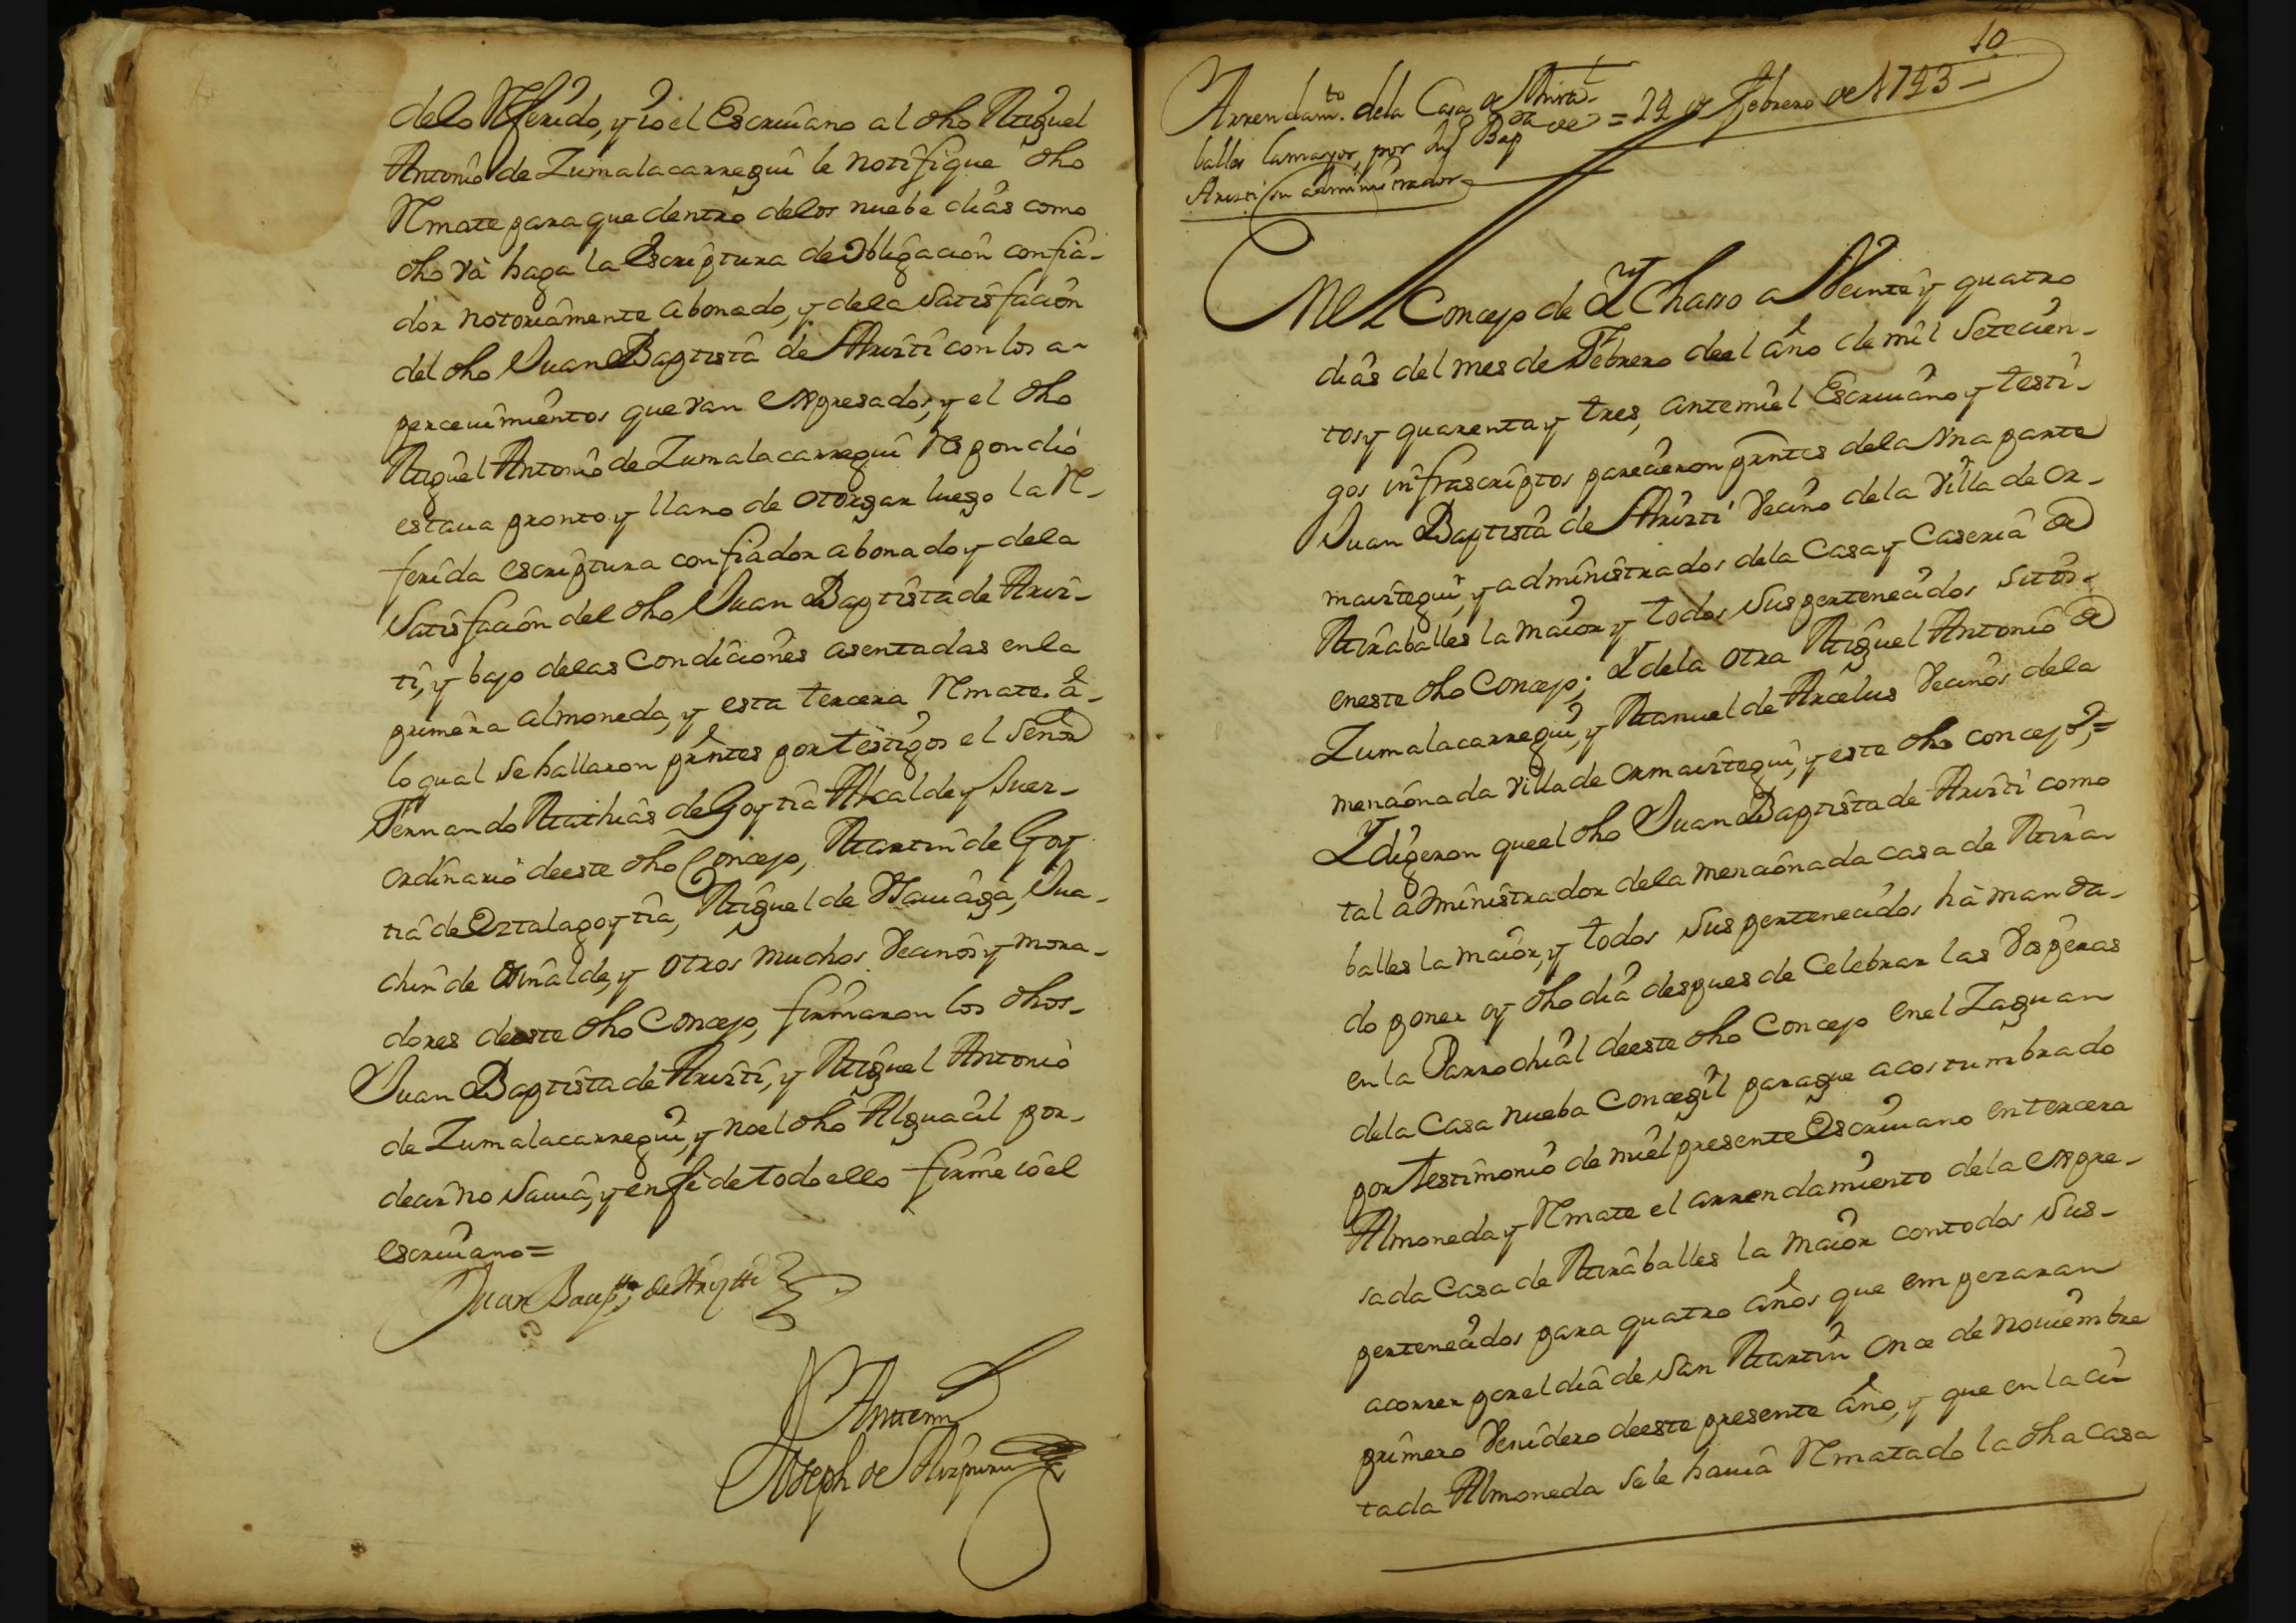 delo Referido, y Yo el Escriuano al dho Miguel
Antonio de Zumalacarregui le notifique dho
Remate para que dentro delos nuebe dias como
dho và haga la Escriptura de Obligacion con fia-
dor notoriamente abonado, y dela Satisfacion
del dho Juan Baptista de Aristi con los a-
percevimientos que van expresados, y el dho
Miguel Antonio de Zumalacarregui Respondiò
estaua pronto y llano de otorgar luego la Re-
ferida escriptura con fiador abonado y dela
Satisfacion del dho Juan Baptista de Aris-
ti, y bajo delas Condiciones asentadas enla
primera almoneda, y esta tercera Remate. à-
lo qual se hallaron presntes por testigos el Señor
Fernando Mathias de Goytia Alcalde y Juez-
ordinario deeste dho Concejo, Martin de Goy
tia de Oztalagoytia, Miguel de
chin de y otros muchos Vecinos y mora-
dores deeste dho Concejo, firmaron los dhos-
Juan Baptista de Aristi, y Miguel Antonio
de Zumalacarregui, y no el dho Alguacil por-
decir no sauia, y en fe de todo ello firmè Yo el
escriuano=
Juan Baupta de Aristti
Antte mi
Joseph de
10
Arrendamto. dela Casa de Mira-
balles lamayor, por Jn Bapta de = 24 de febrero de 1743-
Aristi su administrador
En el Concejo de Ychasso a Veinte y quatro
dias del mes de Febrero deel año de mil Setecien-
tos y quarenta y tres, ante miel Escriuano y testi-
gos infrascriptos parecieron prntes dela Vna parte
Juan Baptista de Aristi Vecino dela Villa de Or-
maiztegui, y administrador dela Casa y Caseria de
Miraballes la maior y todos sus pertenecidos sitos-
eneste dho Concejo; Y dela otra Miguel Antonio de
Zumalacarregui, y Manuel de Arcelus Vecinos dela
mencionada Villa de ormaiztegui, y este dho concejo,=
Y digeron queel dho Juan Baptista de Aristi como
tal administrador dela mencionada casa de Mira-
balles la maior, y todos sus pertenecidos hà manda-
do poner oy dho dia despues de Celebrar las Visperas
en la Parrochial deeste dho Concejo enel Zaguan
dela Casa nueba Concegil parage acostumbrado
por testimonio de miel presente Escriuano en tercera
Almoneda y Remate el arrendamiento dela expre-
sada Casa de Miraballes la maior con todos sus-
pertenecidos para quatro años que empezaran
acorrer por el dia de San Martin once de Nouiembre
primero Venidero deeste presente año, y que en la ci-
tada Almoneda se le hauia Rematado la dha casa